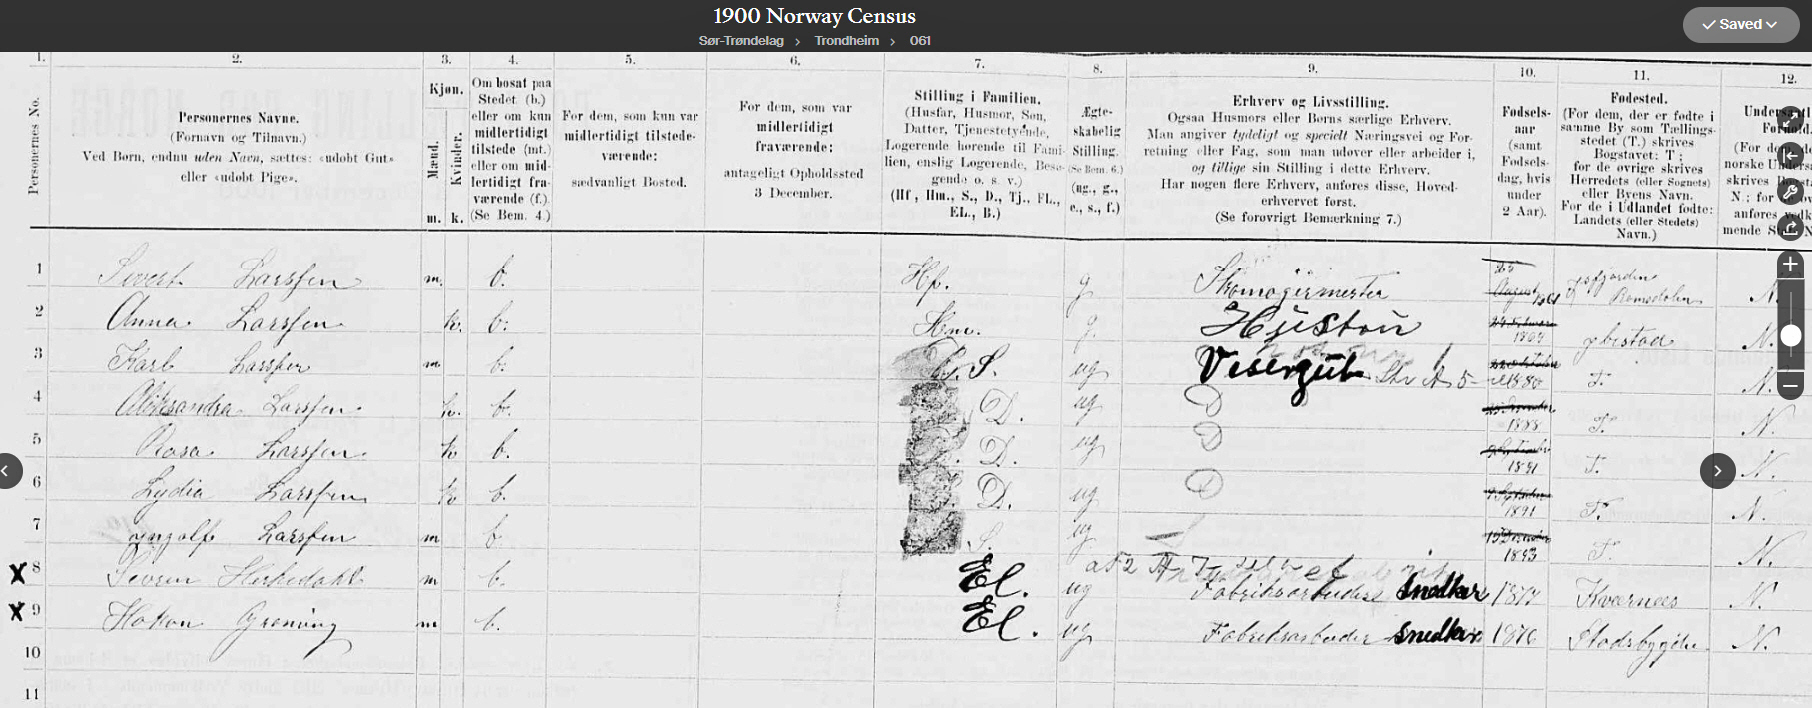 1900 Norway Census
Saved
Sør-Trøndelag > Trondheim > 061
1. 2. 3. 4. 5. 6. 7. 8. 9. 10. 11. 12.
Personernes No.
Personernes Navne.
(Fornavn og Tilnavn.)
Ved Børn, endnu uden Navn, sættes: «udøbt Gut»
eller «udøbt Pige».
Kjøn.
Mænd.
Kvinder.
m. k.
Om bosat paa
Stedet (b.)
eller om kun
midlertidigt
tilstede (mt.)
eller om mid-
lertidigt fra-
værende (f.)
(Se Bem. 4.)
For dem, som kun var
midlertidigt tilstede-
værende:
sædvanligt Bosted.
For dem, som var
midlertidigt
fraværende:
antageligt Opholdssted
3 December.
Stilling i Familien.
(Husfar, Husmor, Søn,
Datter, Tjenestetyende,
Logerende hørende til Fami-
lien, enslig Logerende, Besø-
gende o. s. v.)
(Hf, Hm., S., D., Tj., FL.,
EL., B.)
Ægte-
skabelig
Stilling.
(Se Bem. 6.)
(ug., g.,
e., s., f.)
Erhverv og Livsstilling.
Ogsaa Husmors eller Børns særlige Erhverv.
Man angiver tydeligt og specielt Næringsvei og For-
retning eller Fag, som man udøver eller arbeider i,
og tillige sin Stilling i dette Erhverv.
Har nogen flere Erhverv, anføres disse, Hoved-
erhvervet først.
(Se forøvrigt Bemærkning 7.)
Fødsels-
aar
(samt
Fødsels-
dag, hvis
under
2 Aar).
Fødested.
(For dem, der er fødte i
samme By som Tællings-
stedet (T.) skrives
Bogstavet: T;
for de øvrige skrives
Herredets (eller Sognets)
eller Byens Navn.
For de i Udlandet fødte:
Landets (eller Stedets)
Navn.)
norske Unders
skrives
N.; for
anføres
mende
1 Sivert Larssen m. b. Hf. g Skomagermester August 1861 Romsdalen N.
2 Anna Larssen k. b. Hm. g. Hustru 1865 Ibestad N.
3 Karl Larssen m b. S. ug Visergut 1880 T. N.
4 Aleksandra Larssen k. b. D. ug D 1888 T. N.
5 Rosa Larssen k b. D. ug D 1891 T. N.
6 Lydia Larssen k b. D. ug D 1891 T. N.
7 Yngolf Larssen m b. S. ug 1893 T. N.
X 8 m b. El. ug Fabriksarbeider Snedker 1877 Kvernes N.
X 9 Hakon Grøning m b. El. ug Fabriksarbeider Snedker 1876 Stadsbygden N.
10
11